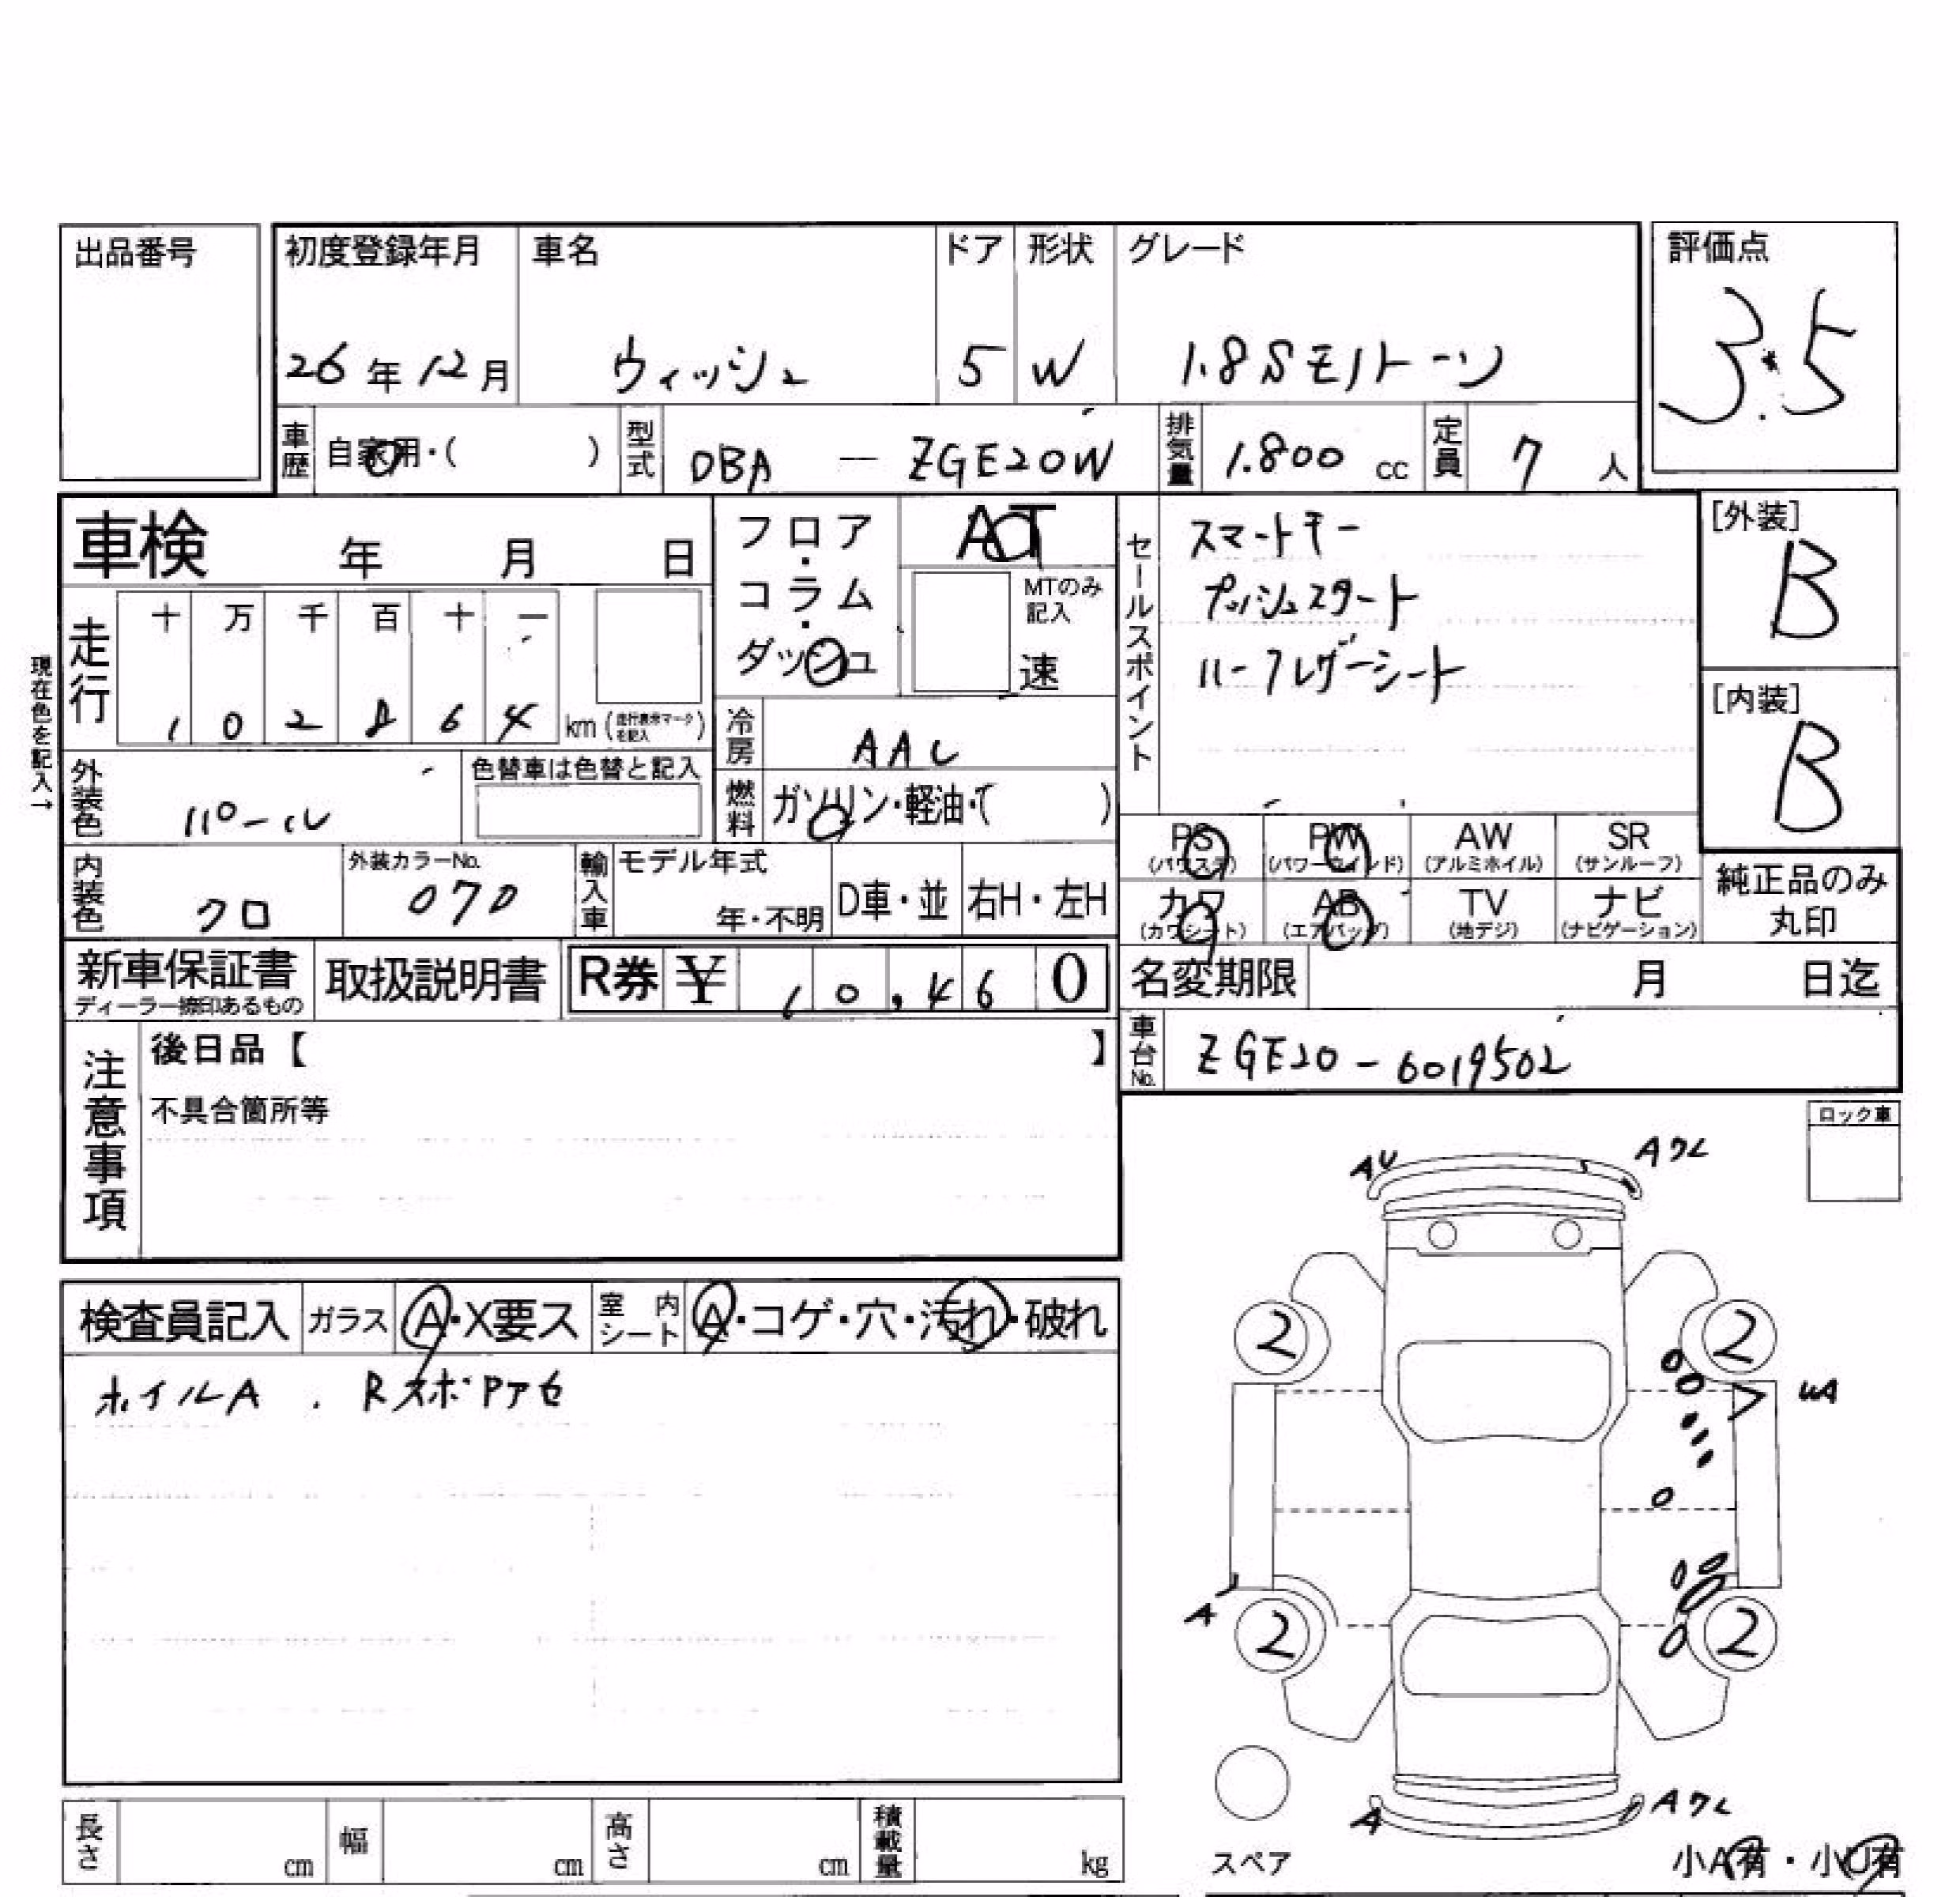 出品番号
初度登録年月 車名 ドア 形状 グレード 評価点
26年12月 ウィッシュ 5 W 1.8Sモノトーン 3.5
車歴 自家用・( ) 型式 DBA — ZGE20W 排気量 1.800 cc 定員 7 人
車検 年 月 日
フロア・コラム・ダッシュ
AT
MTのみ記入
速
セールスポイント
スマートキー
プッシュスタート
ハーフレザーシート
[外装]
B
[内装]
B
現在色を記入→
走行 十 万 千 百 十 一
1 0 2 8 6 4 km (走行表示マークを記入)
冷房 AAC
外装色 パール 色替車は色替と記入
燃料 ガソリン・軽油・( )
PS (パワステ) PW (パワーウインド) AW (アルミホイル) SR (サンルーフ)
カワ (カワシート) AB (エアバッグ) TV (地デジ) ナビ (ナビゲーション)
純正品のみ丸印
内装色 クロ 外装カラーNo. 070 輸入車 モデル年式 年・不明 D車・並 右H・左H
新車保証書 ディーラー捺印あるもの 取扱説明書 R券 ¥ 10,460
名変期限 月 日迄
車台No. ZGE20-6019502
注意事項
後日品【 】
不具合箇所等
ロック車
検査員記入 ガラス A・X要ス 室内シート A・コゲ・穴・汚れ・破れ
ホイルA . RスポPアセ
AU Aワレ
2 2
UA
A
2 2
A Aワレ
スペア
小A有・小U有
長さ cm 幅 cm 高さ cm 積載量 kg